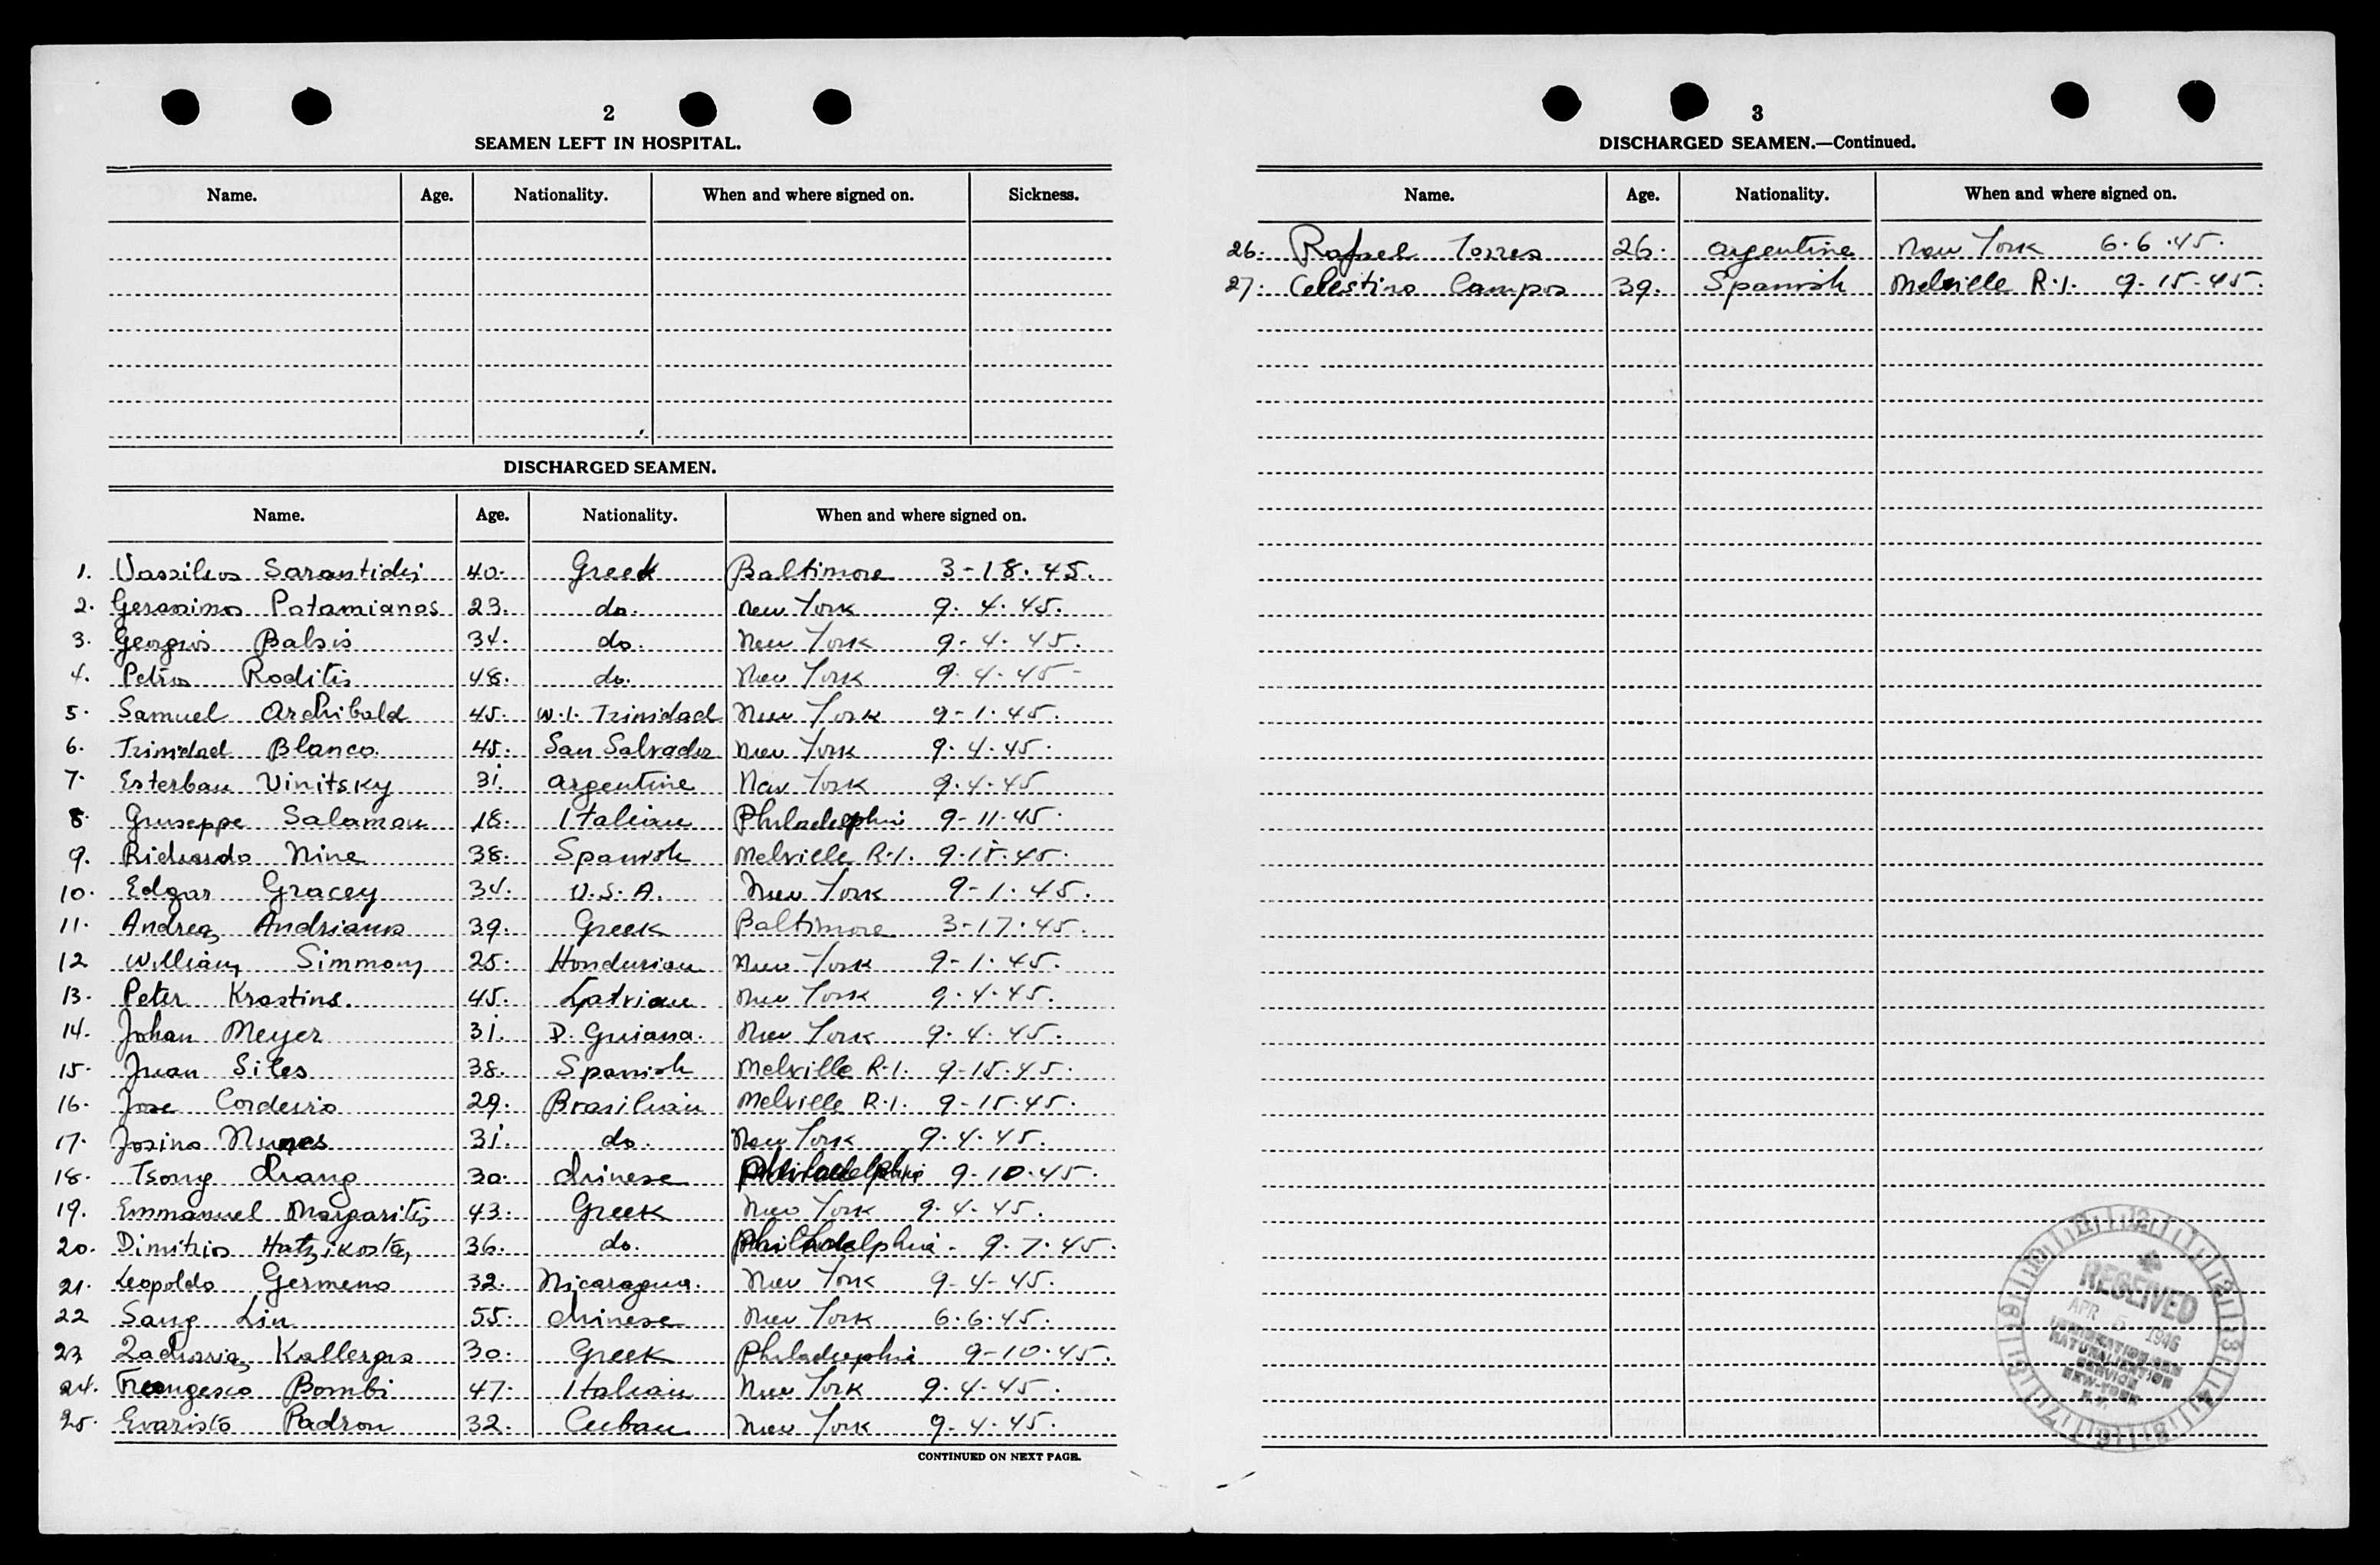 2
SEAMEN LEFT IN HOSPITAL.
Name. Age. Nationality. When and where signed on. Sickness.
DISCHARGED SEAMEN.
Name. Age. Nationality. When and where signed on.
1. Vassilios Sarantidis 40. Greek Baltimore 3-18.45.
2. Gerasimos Potamianos 23. do. New York 9.4.45.
3. Georgios Balsis 34. do. New York 9-4.45.
4. Petros Roditis 48. do. New York 9.4.45-
5. Samuel Archibald 45. W.I. Trinidad New York 9-1.45.
6. Trinidad Blanco. 45. San Salvador New York 9.4.45.
7. Esterban Vinitsky 31. Argentine New York 9.4.45
8. Giuseppe Salamon 18. Italian Philadelphia 9-11.45.
9. Richardo Nine 38. Spanish Melville R.I. 9.15.45.
10. Edgar Gracey 34. U.S.A. New York 9-1.45.
11. Andreas Andrianos 39. Greek Baltimore 3-17.45.
12 William Simmons 25. Hondurian New York 9-1.45.
13. Peter Krastins. 45. Latvian New York 9.4.45.
14. Johan Meyer 31. D. Guiana. New York 9.4.45.
15. Juan Siles 38. Spanish Melville R.I. 9-15.45.
16. Jose Cordeiro 29. Brasilian Melville R.I. 9-15.45.
17. Josino Nunes 31. do. New York 9.4.45.
18. Tsong Chang 30. Chinese Philadelphia 9-10.45.
19. Emmanuel Margaritis 43. Greek New York 9.4.45.
20. Dimitrios Hatzikostas 36. do. Philadelphia. 9.7.45.
21. Leopoldo Germeno 32. Nicaragua. New York 9-4-45.
22 Sang Lin 55. Chinese New York 6.6.45.
23 Zacharias Kallergis 30. Greek Philadelphia 9-10.45.
24. Bombi 47. Italian New York 9.4.45.
25. Evaristo Padron 32. Cuban New York 9-4.45.
CONTINUED ON NEXT PAGE.
3
DISCHARGED SEAMEN.—Continued.
Name. Age. Nationality. When and where signed on.
26. Rafael Torres 26. Argentine New York 6.6.45.
27. Celestino Campos 39. Spanish Melville R.I. 9-15-45.
RECEIVED
APR 5 1946
IMMIGRATION AND
NATURALIZATION
SERVICE
NEW-YORK
N.Y.